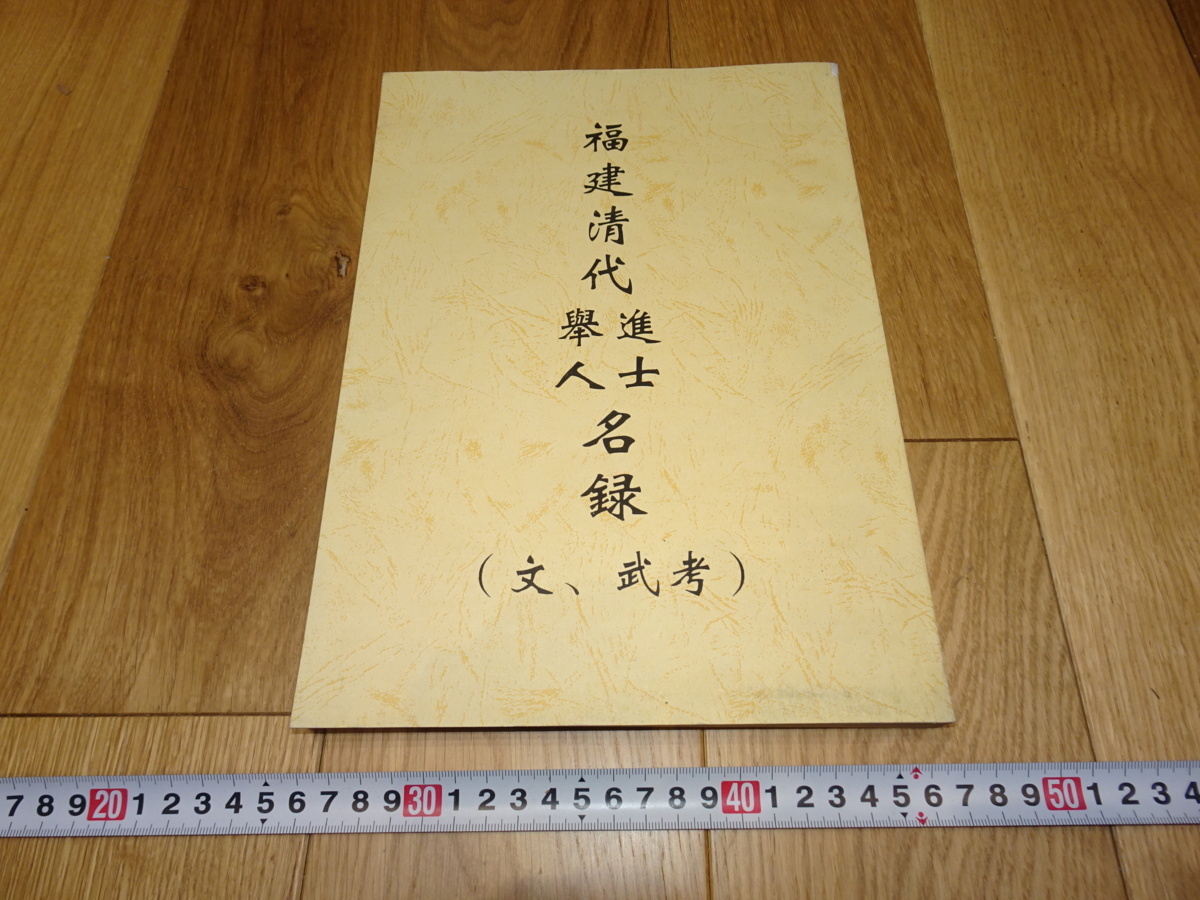 福建清代
進士
舉人
名録
（文、武考）
7 8 9 20 1 2 3 4 5 6 7 8 9 30 1 2 3 4 5 6 7 8 9 40 1 2 3 4 5 6 7 8 9 50 1 2 3 4